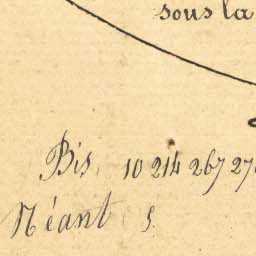 sous la
Bis 10 214 267 27
Néant 5